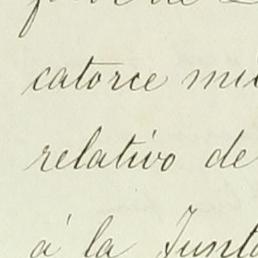 catorce mi
relativo de
á la Junt